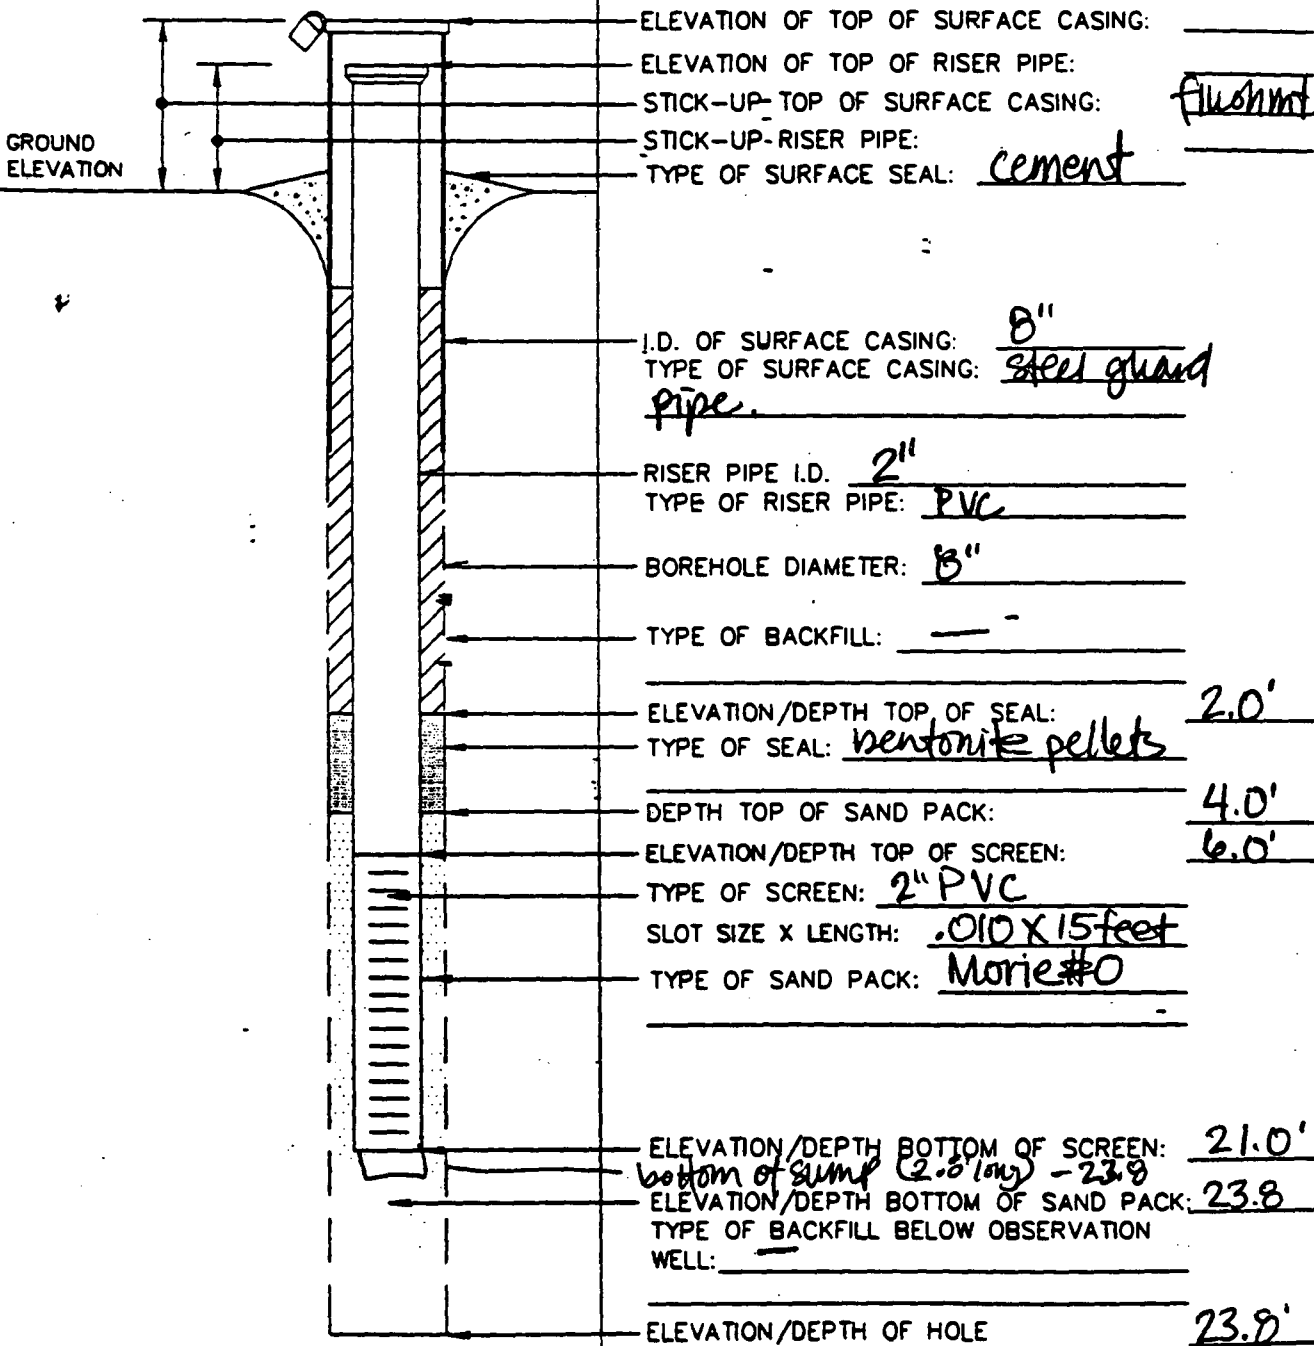 ELEVATION OF TOP OF SURFACE CASING:
ELEVATION OF TOP OF RISER PIPE:
STICK-UP-TOP OF SURFACE CASING: flushmt
STICK-UP-RISER PIPE:
GROUND
ELEVATION
TYPE OF SURFACE SEAL: cement
I.D. OF SURFACE CASING: 8"
TYPE OF SURFACE CASING: steel guard
pipe.
RISER PIPE I.D. 2"
TYPE OF RISER PIPE: PVC
BOREHOLE DIAMETER: 8"
TYPE OF BACKFILL: —
ELEVATION/DEPTH TOP OF SEAL: 2.0'
TYPE OF SEAL: bentonite pellets
DEPTH TOP OF SAND PACK: 4.0'
ELEVATION/DEPTH TOP OF SCREEN: 6.0'
TYPE OF SCREEN: 2" PVC
SLOT SIZE X LENGTH: .010 X 15 feet
TYPE OF SAND PACK: Morie #0
ELEVATION/DEPTH BOTTOM OF SCREEN: 21.0'
bottom of sump (2.8' long) - 23.8
ELEVATION/DEPTH BOTTOM OF SAND PACK: 23.8
TYPE OF BACKFILL BELOW OBSERVATION
WELL: —
ELEVATION/DEPTH OF HOLE 23.8'